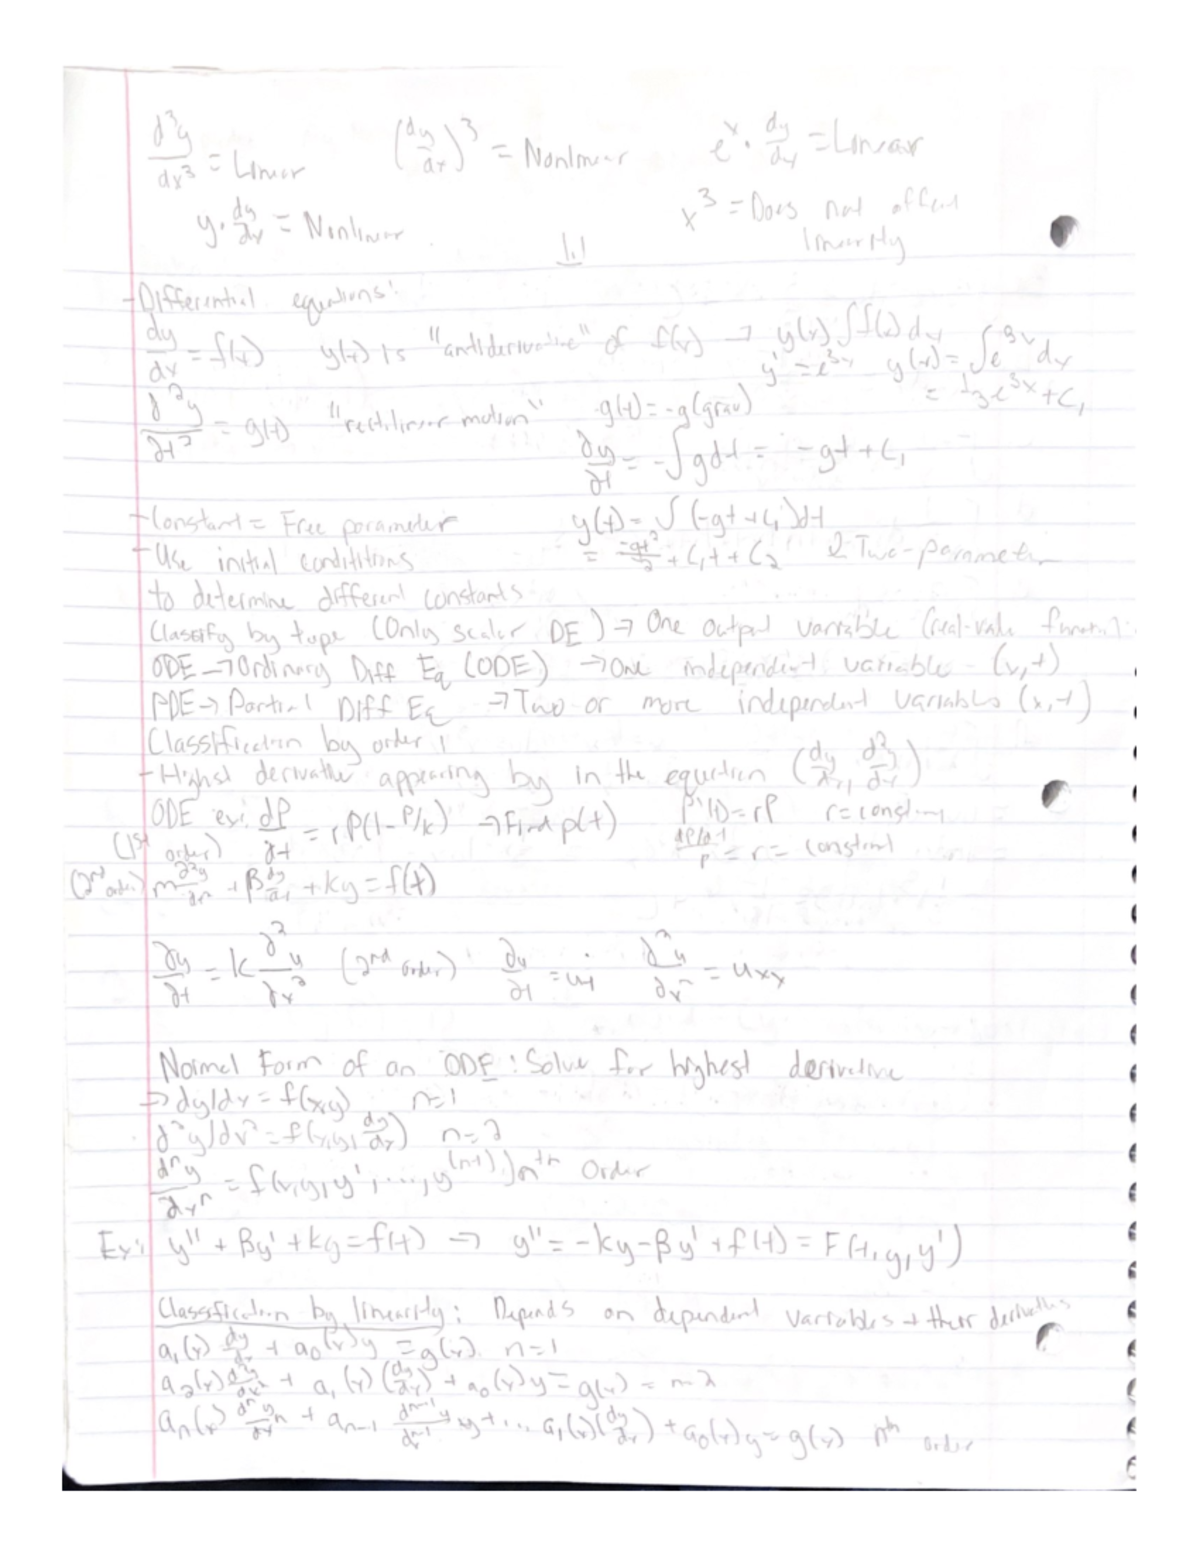 d³y/dx³ = Linear (dy/dx)³ = Nonlinear eˣ · dy/dx = Linear
y · dy/dx = Nonlinear x³ = Does not affect linearity
1.1
- Differential equations:
dy/dx = f(x) y(x) is "antiderivative" of f(x) → y(x) ∫f(x) dx
y' = e³ˣ y(x) = ∫e³ˣ dx
= 1/3 e³ˣ + C₁
d²y/dt² = g(t) "rectilinear motion" g(t) = -g (grav)
dy/dt = -∫g dt = -gt + C₁
- Constant = Free parameter y(t) = ∫(-gt + C₁)dt
- Use initial condititions = -gt²/2 + C₁t + C₂ 2 Two-parameter
to determine different constants
Classify by type (Only scalar DE) → One output variable (real-value function)
ODE → Ordinary Diff Eq (ODE) → One independent variable - (x, t)
PDE → Partial Diff Eq → Two or more independent variables (x, t)
Classification by order
- Highest derivative appearing by in the equation (dy/dx, d²y/dx²)
ODE ex: dP/dt = rP(1 - P/k) → Find p(t) P'(t) = rP r = constant
(1st order) dP/dt / P = r = constant
(2nd order) m d²y/dt² + β dy/dt + ky = f(t)
∂u/∂t = k ∂²u/∂x² (2nd order) ∂u/∂t = uₜ ∂²u/∂x² = uₓₓ
Normal Form of an ODE: Solve for highest derivative
→ dy/dx = f(x,y) n=1
d²y/dx² = f(x,y, dy/dx) n=2
dⁿy/dxⁿ = f(x, y, y', ..., y⁽ⁿ⁻¹⁾) nth Order
Ex: y'' + βy' + ky = f(t) → y'' = -ky - βy' + f(t) = F(t, y, y')
Classification by linearity: Depends on dependent variables + their derivatives
a₁(x) dy/dx + a₀(x)y = g(x) n=1
a₂(x) d²y/dx² + a₁(x)(dy/dx) + a₀(x)y = g(x) = n=2
aₙ(x) dⁿy/dxⁿ + aₙ₋₁ dⁿ⁻¹y/dxⁿ⁻¹ + ... a₁(x)(dy/dx) + a₀(x)y = g(x) nth order